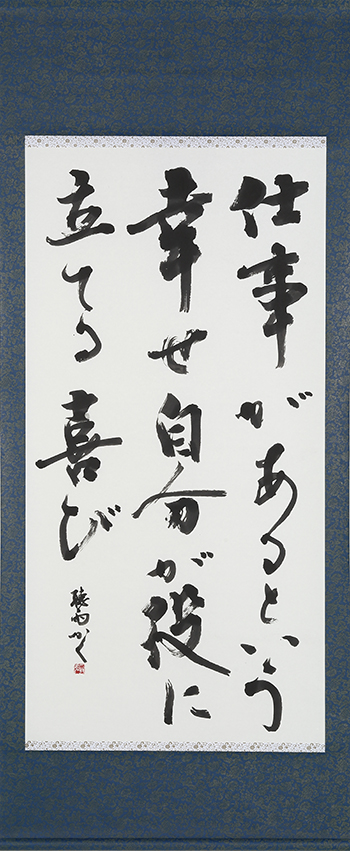 仕事があるという
幸せ自分が役に
立てる喜び
聴雨かく